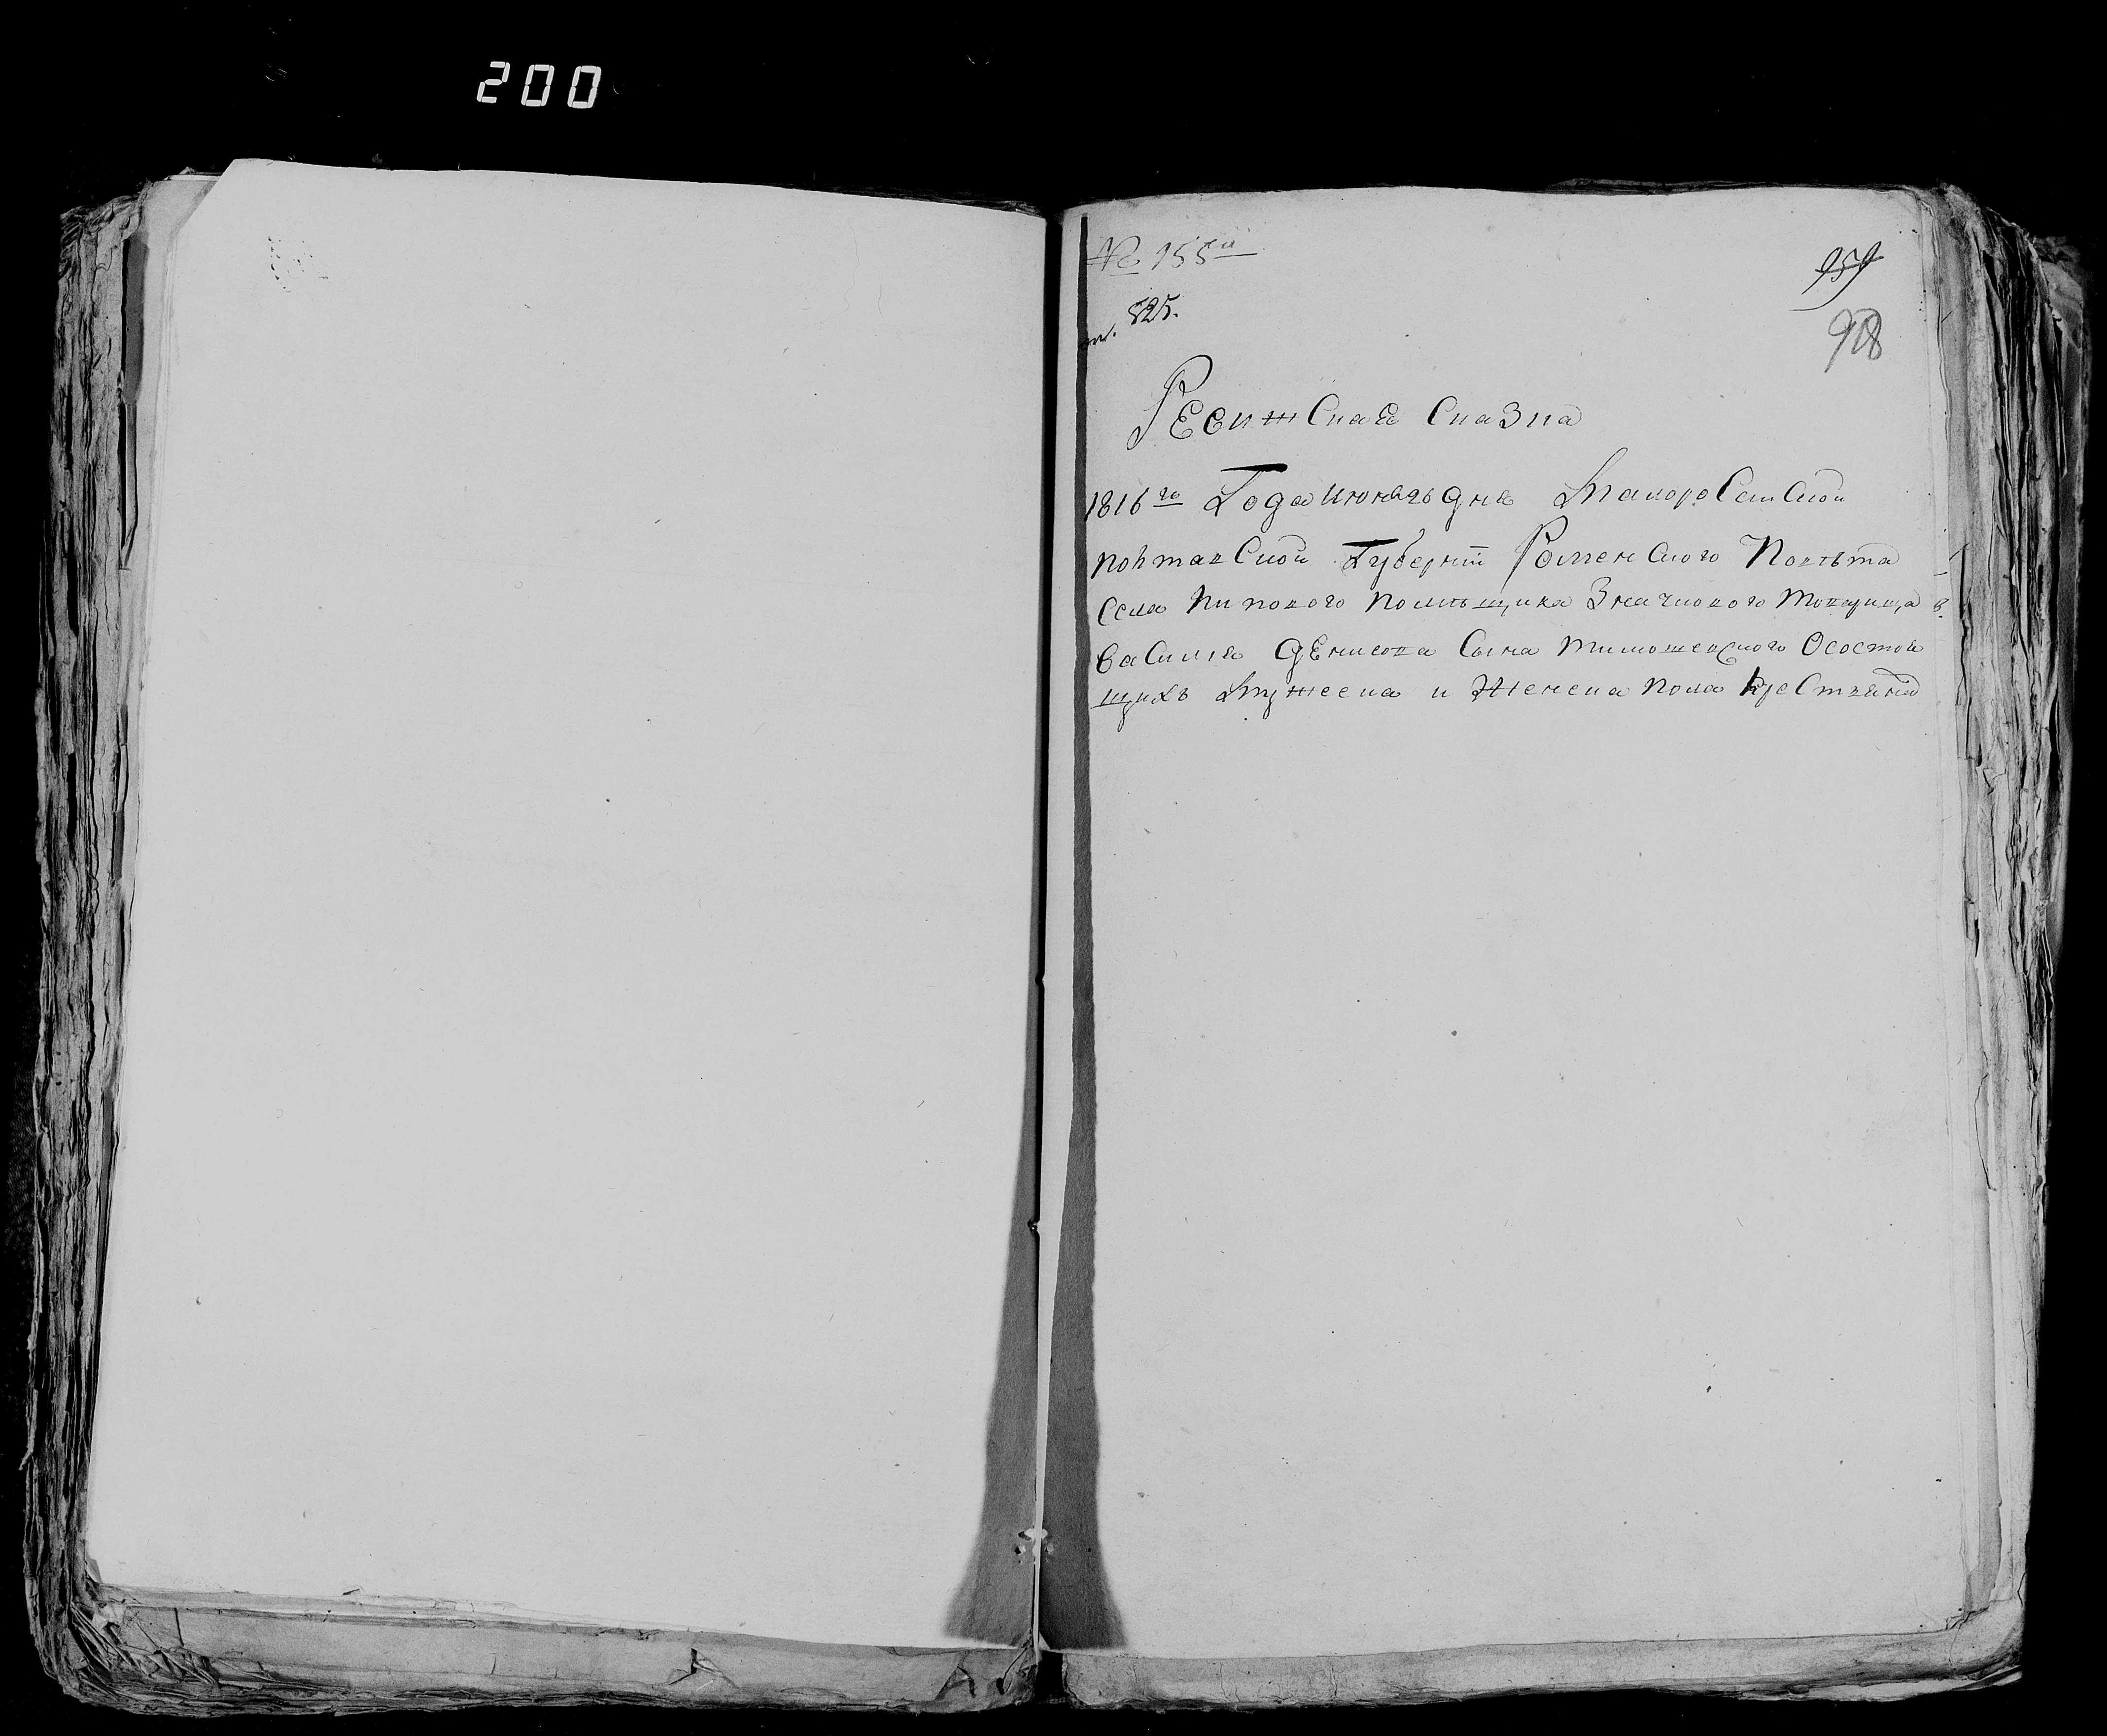 200
№ 155й
959
825.
918
Ревижская Сказка
1816го Года июня 26 дня Малоросийской
Полтавской Губерніи Роменского Повѣта
села Липового помѣщика Значкового товарища
Василія Денисова Сына Тимошевского Осостоя
щихъ мужеска и Женска пола крестьянъ